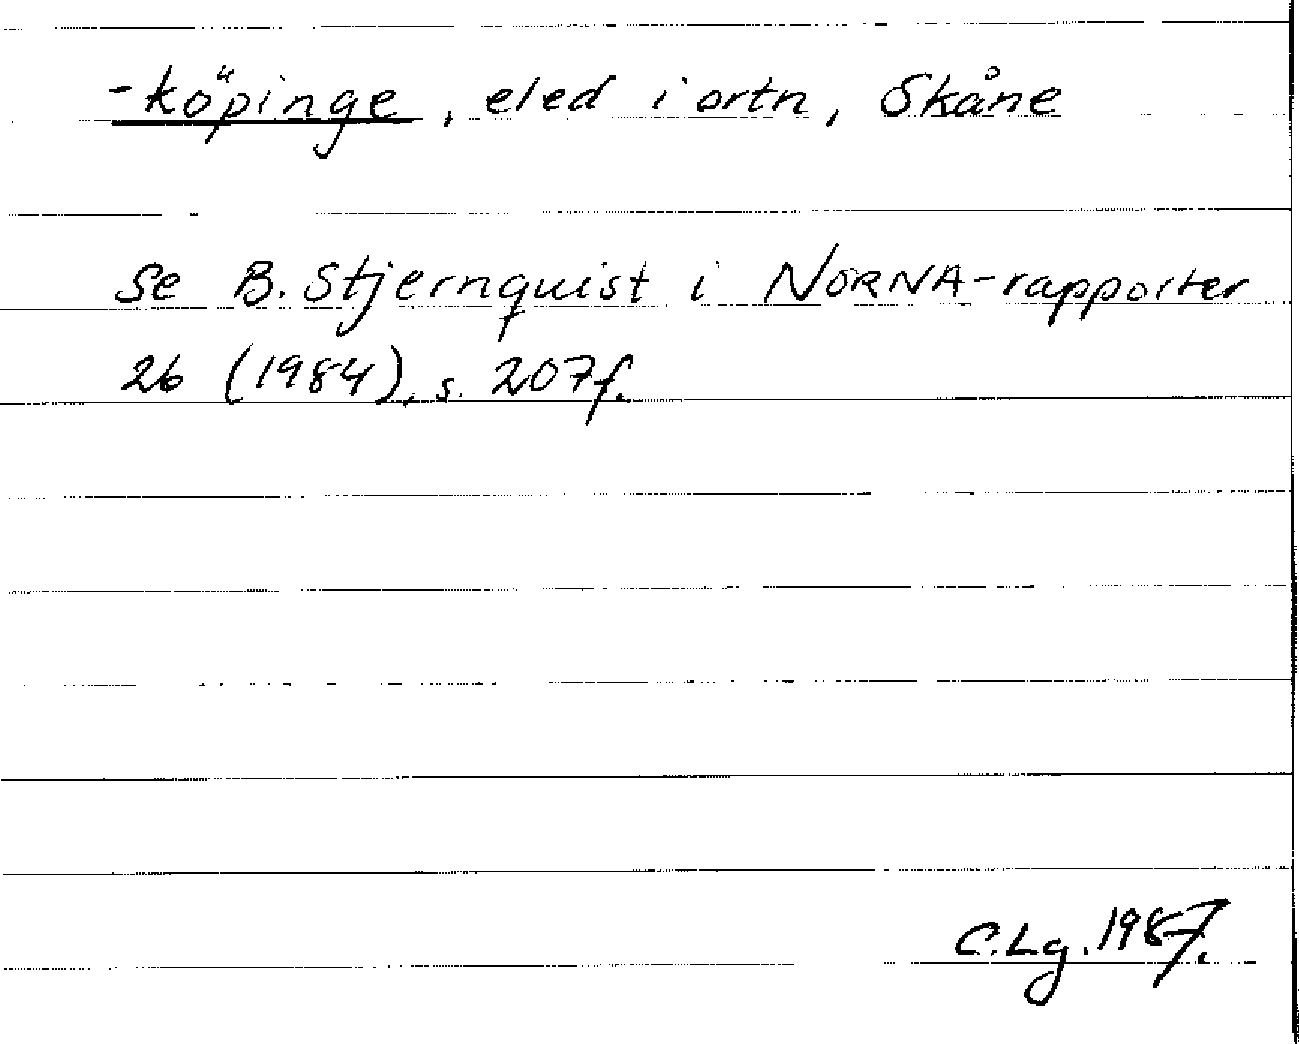 -köpinge, eled i ortn, Skåne
Se B. Stjernquist i NORNA-rapporter
26 (1984), s. 207f.
C.Lg. 1987.